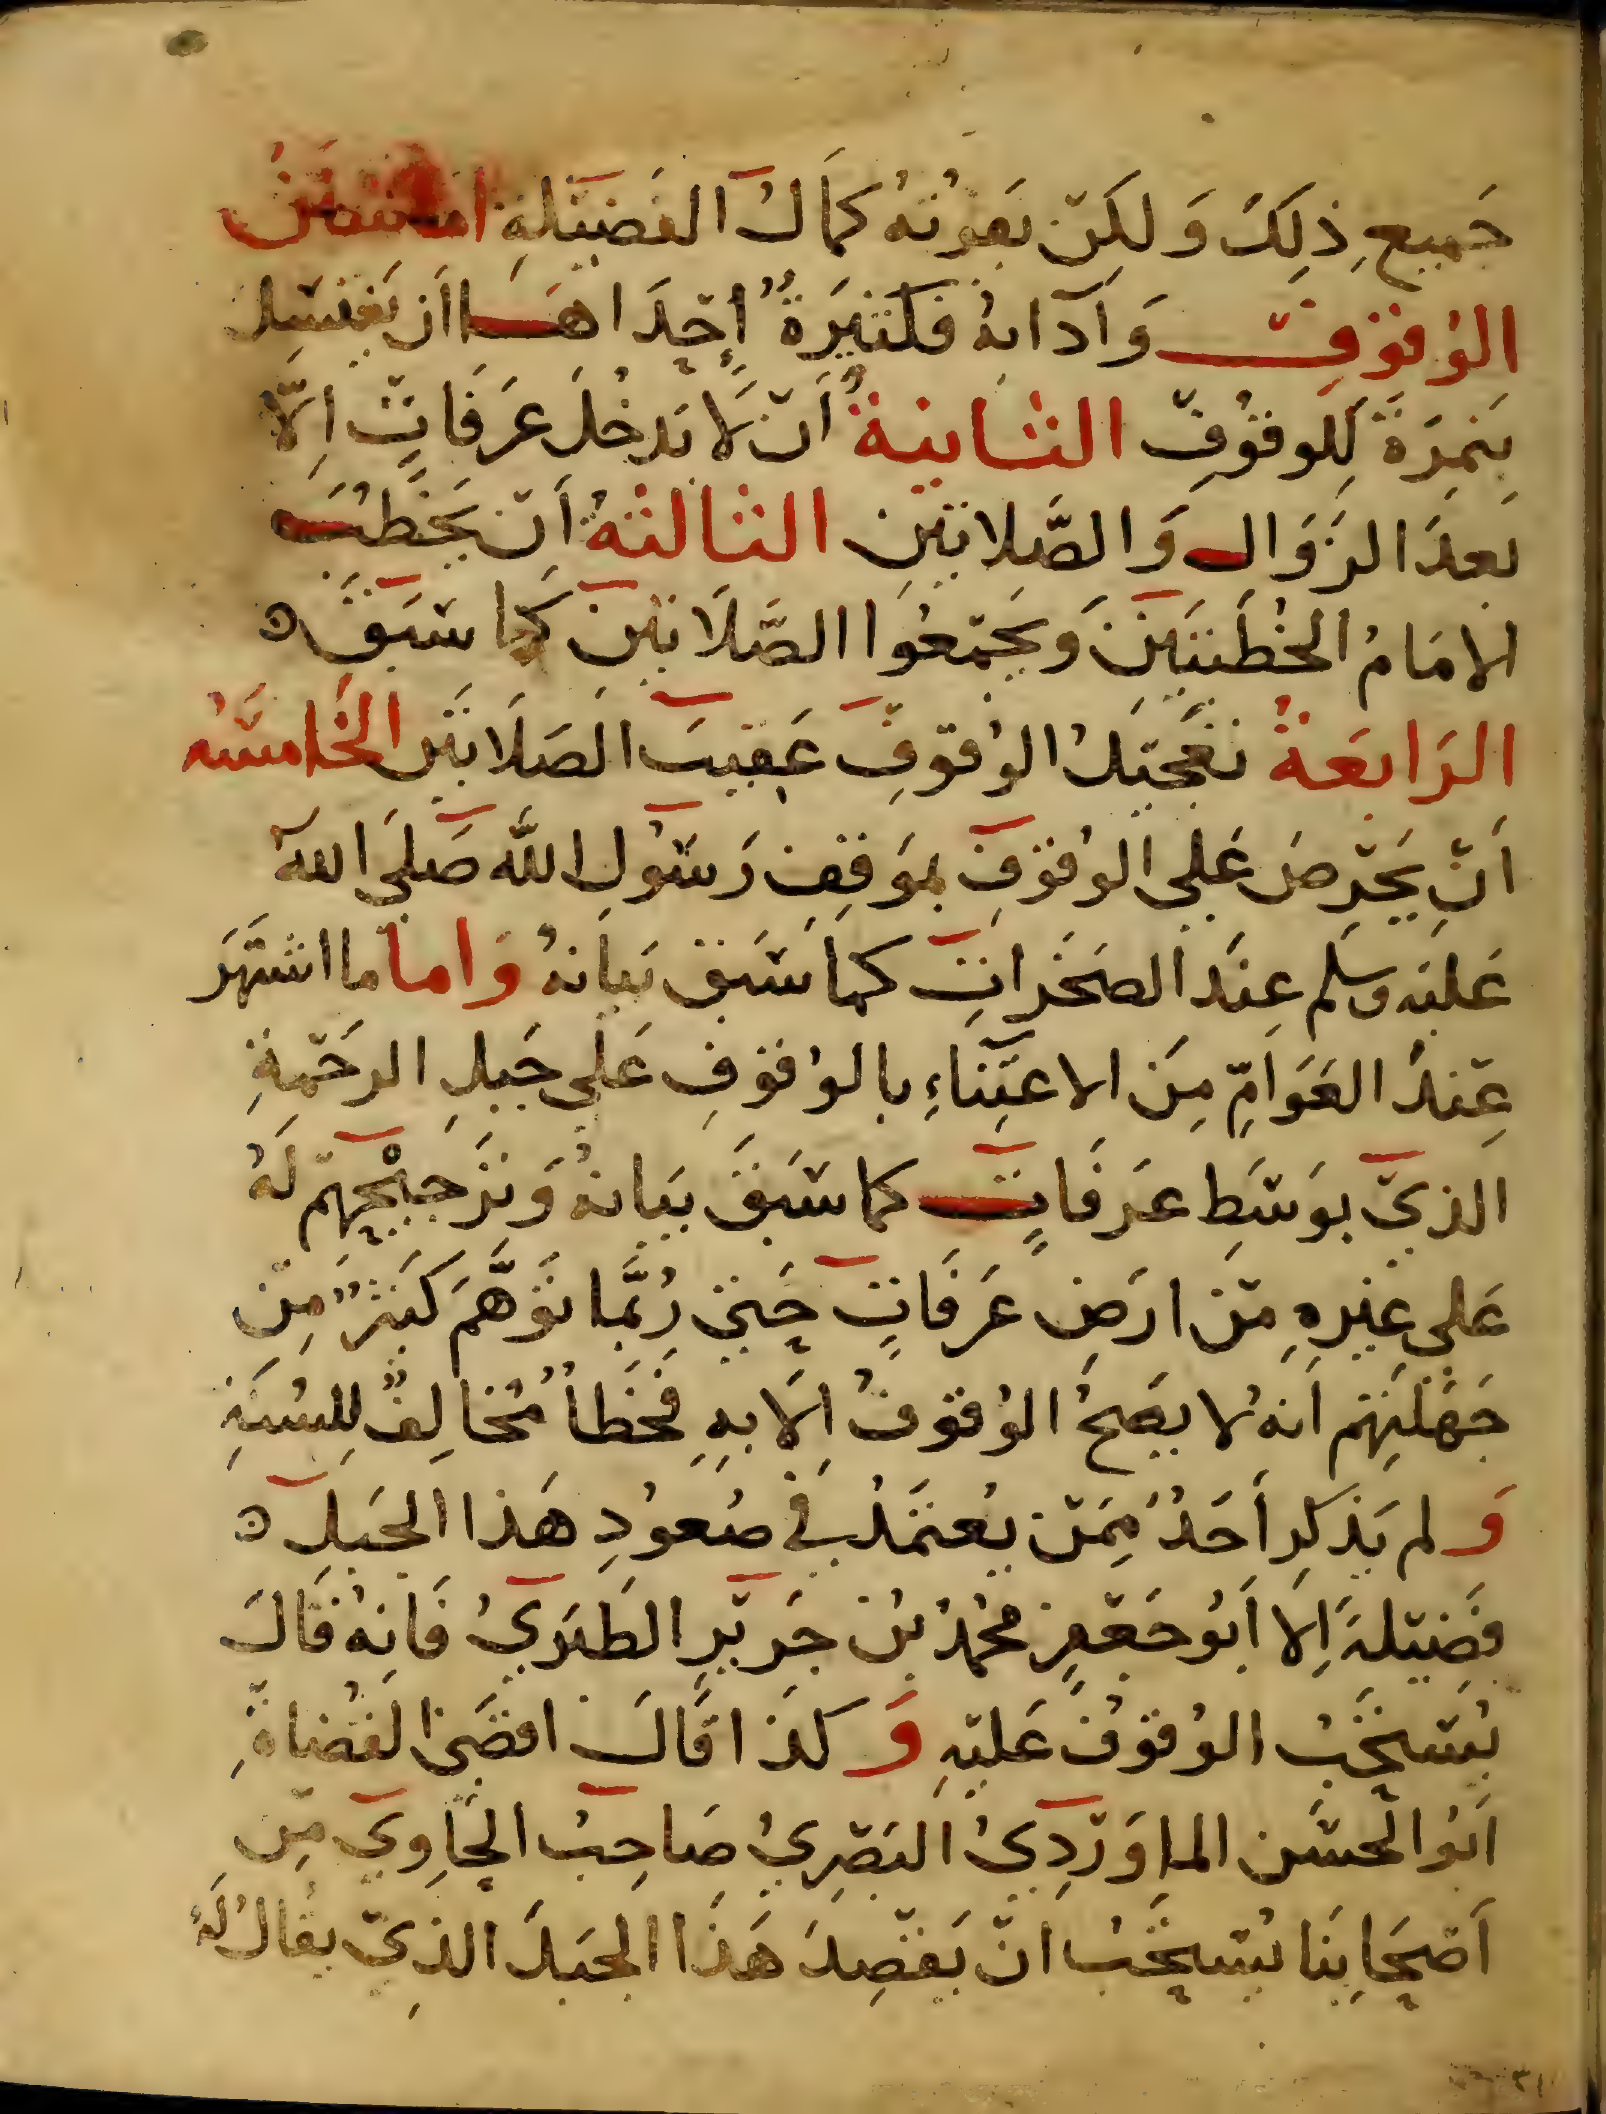 جَمِيعِ ذلِكَ وَلكِنْ يَفُوتُهُ كَمَالُ الفَضِيْلَةِ اما سُنَنُ
الوُقُوْفِ وَآدَابُهُ فكَثِيْرَةٌ إحْدَاهَا ان يَغتَسِلَ
بِنَمِرَةَ لِلوقُوفِ الثانية أنْ لَا يَدخُلَ عَرَفَاتٍ اِلّا
بَعدَ الزَوَالِ وَالصَّلاتيْنِ الثالثةُ أنْ يَخْطُبَ
الامَامُ الخُطْبَتَيْنِ وَيَجْمَعُوا الصَّلَاتَيْنِ كما سَبَقَ ه
الرَابعَةُ تَعْجِيْلُ الوُقُوْفِ عَقِيبَ الصَلَاتَيْنِ الخَامسَة
أنْ يَحْرِصَ عَلى الوُقُوفِ بمَوقِفِ رَسُولِ اللّه صَلى الله
عَليْه وسلم عِندَ الصَخَرَاتِ كما سَبَقَ بَيَانهُ وَاما ما اشتَهَرَ
عِندَ العَوَامِّ مِنَ الاعتِنَاءِ بالوُقوفِ عَلى جَبلِ الرحْمَةِ
الذيْ بوَسَطِ عرَفَاتٍ كما سَبَقَ بيَانهُ وَترجِيْحِهِمْ لَهُ
عَلى غيْرِهِ مْن ارَضِ عَرَفَاتٍ حَتى رُبَّما تَوَهَّمَ كَثيْرٌ مِنْ
جَهَلَتِهِم انهُ لا يَصَحُ الوُقوْفُ اِلَا بِهِ فَخَطَأٌ مُخالِفٌ لِلسُنَةِ
وَلم يَذكر أحَدٌ مِمَنْ يُعْتَمَدُ في صُعودِ هَذا الجَبلِ ه
فَضيْلةً إلَا أبُو جَعْفرٍ محُمَّدُ بْنُ جَرِيْرِ الطَبَرِيُ فَانهُ قَالَ
يُسْتَحَبُ الوُقوْفُ عَليْهِ وَكذَا قَالَ اقضَى القُضاةِ
ابُو الحسَن الماوَرْدِيُ البَصْرِيُ صَاحِبُ الحَاوِي مِن
أصْحَابِنَا يُسْتَحَبُ انْ يَقْصِدَ هَذَا الجبَلَ الذِيْ يقالُ لَهُ